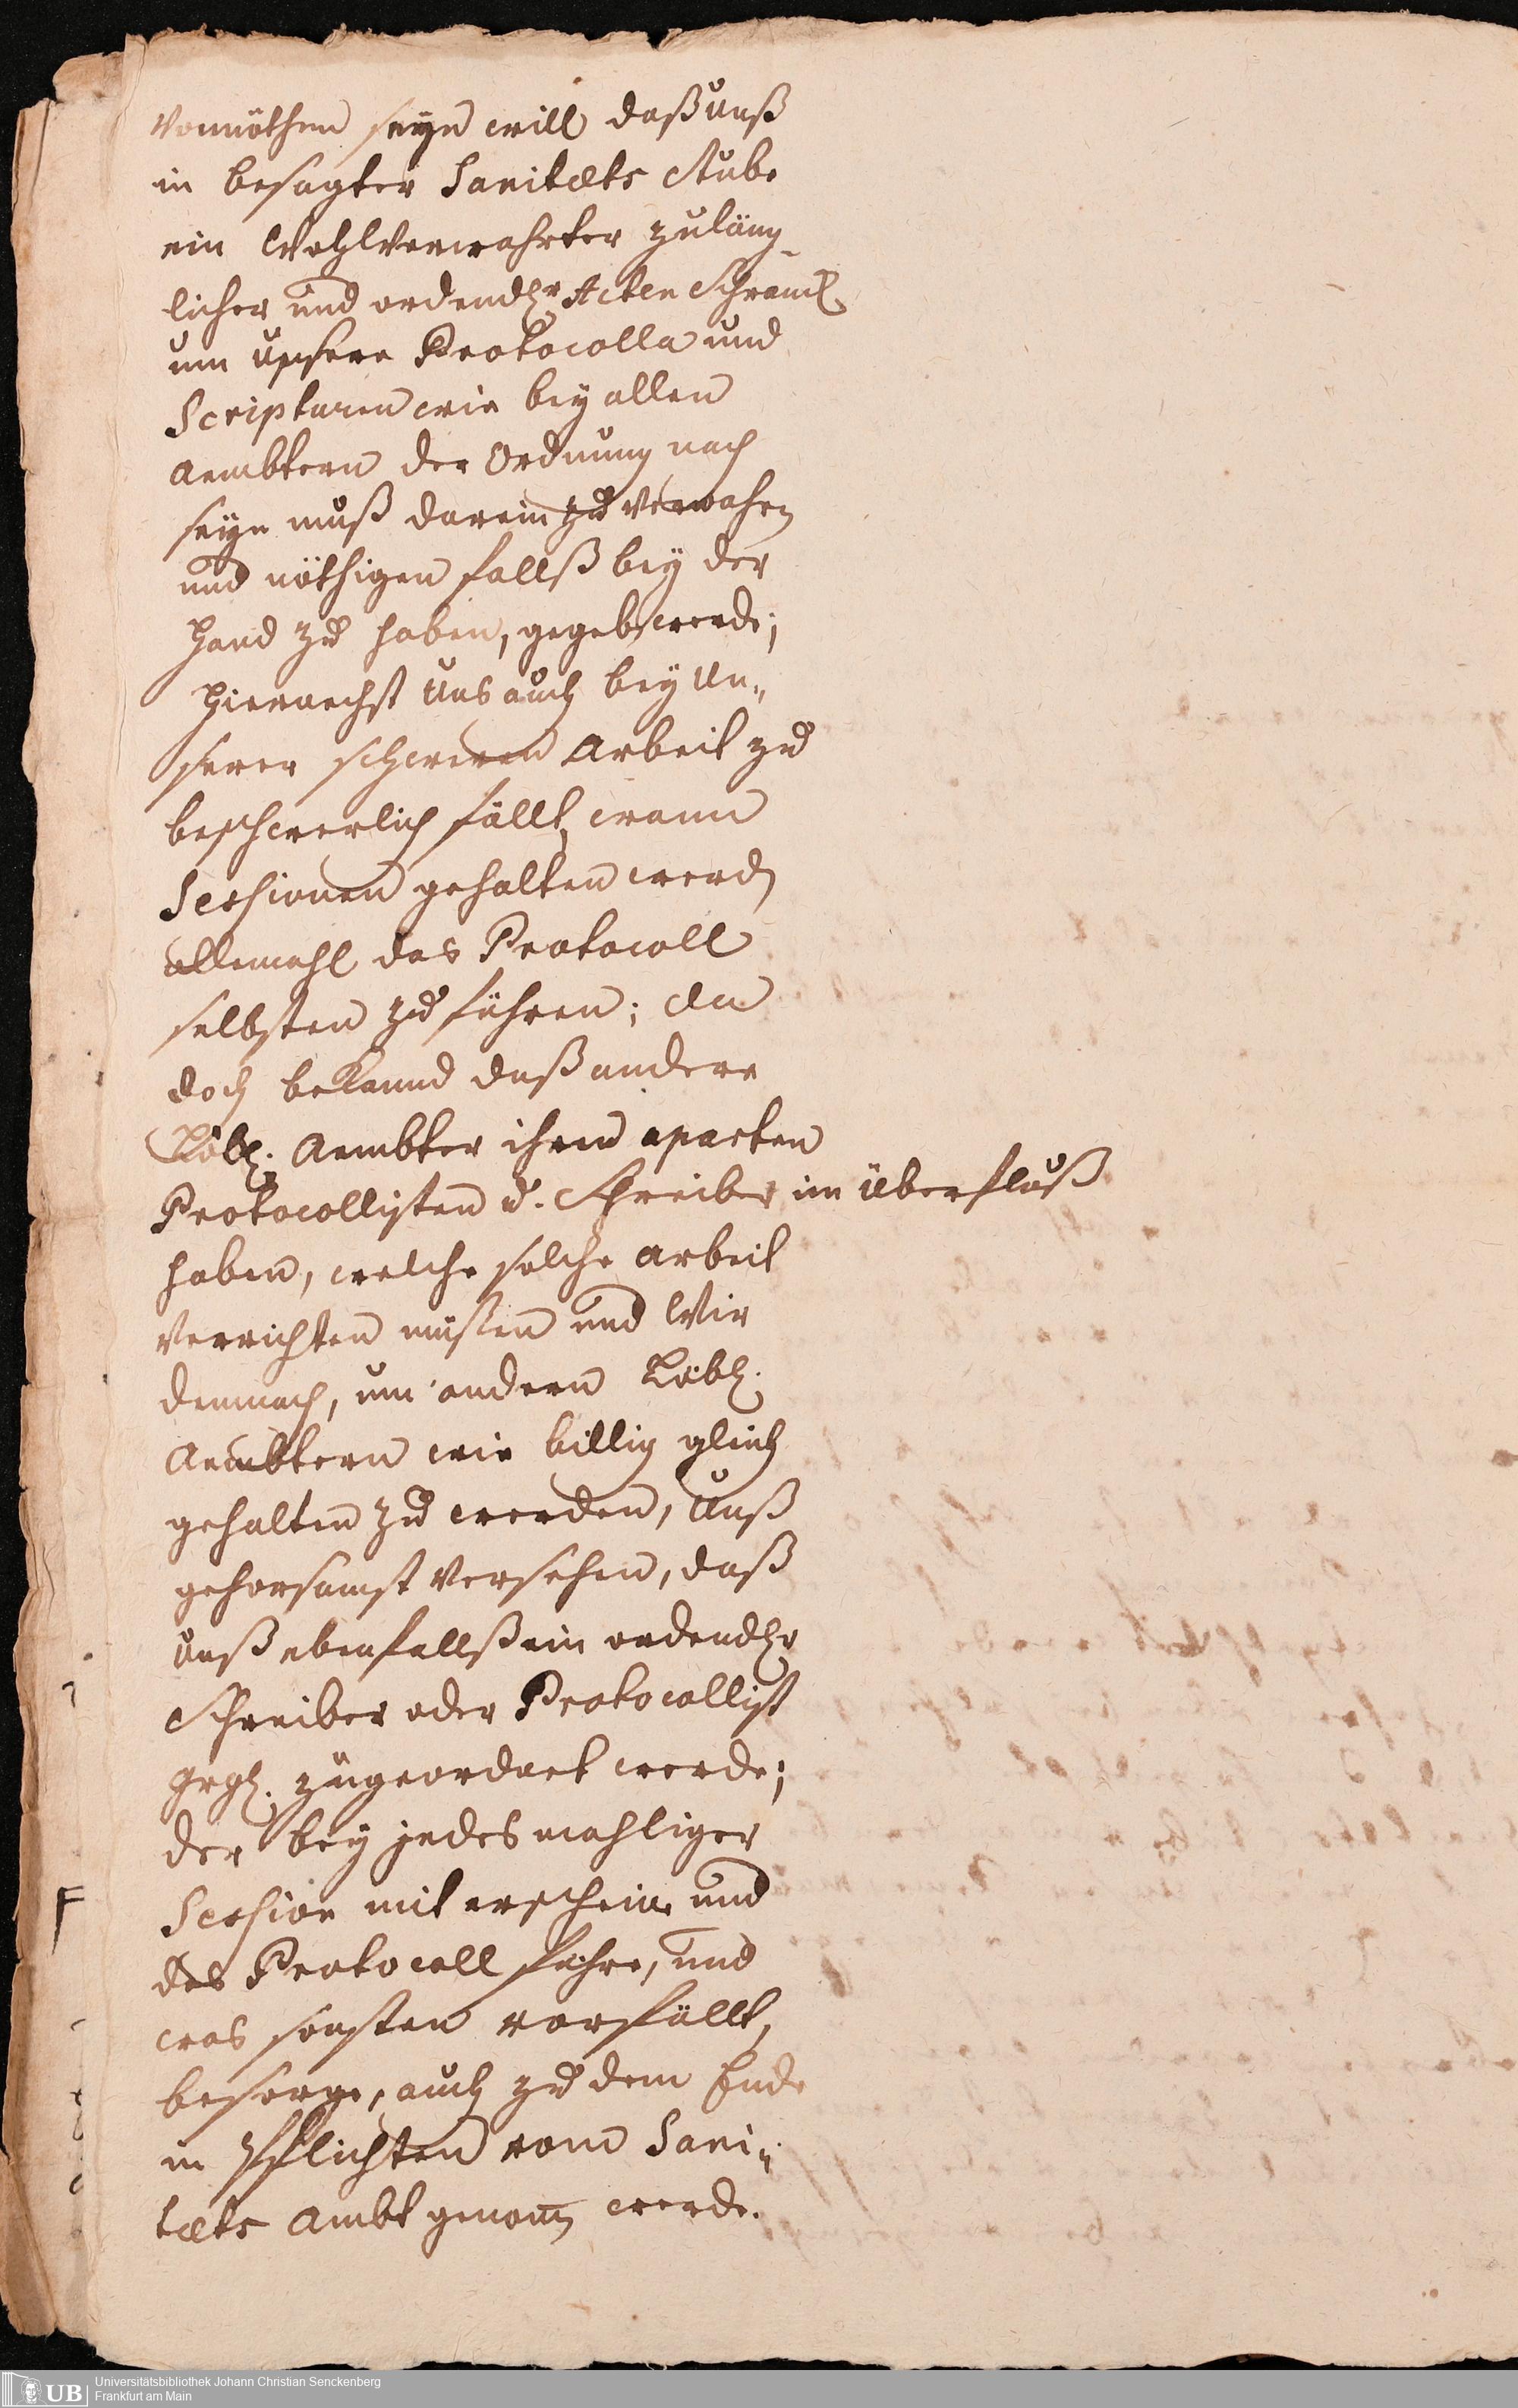 Vonnöthen seyn will daß unß
in besagter Sanitæts Stube
ein Wohlverwahrter zuläng-
licher und ordendlr Acten Schranck
um unsere Protocolla und
Scripturen wie bey allen
Aembtern der Ordnung nach
seyn muß darein zu verwahrn
und nöthigen fallß bey der
Hand zu haben, gegeb werde;
Hiernechst uns auch bey un„
serer schweren Arbeit zu
beschwerlich fällt, wann
Sessionen gehalten werdn
allemahl das Protocoll
selbsten zu führen; da
doch bekannd daß andere
Löbl. Aembter ihren aparten
Protocollisten u. Schreiber im überfluß
haben, welche solche Arbeit
verrichten müßen und Wir
demnach, um andern Löbl.
Aembtern wie billig gleich
gehalten zu werden, Unß
gehorsamst versehen, daß
unß ebenfallß ein ordendlr
Schreiber oder Protocollist
grgl. zugeordnet werde;
der bey jedesmahliger
Session mit erscheine und
das Protocoll führe, und
was sonsten vorfällt,
besorge, auch zu dem Ende
in Pflichten vom Sani„
tæts Ambt genomn werde.
F
UB
Universitätsbibliothek Johann Christian Senckenberg
Frankfurt am Main